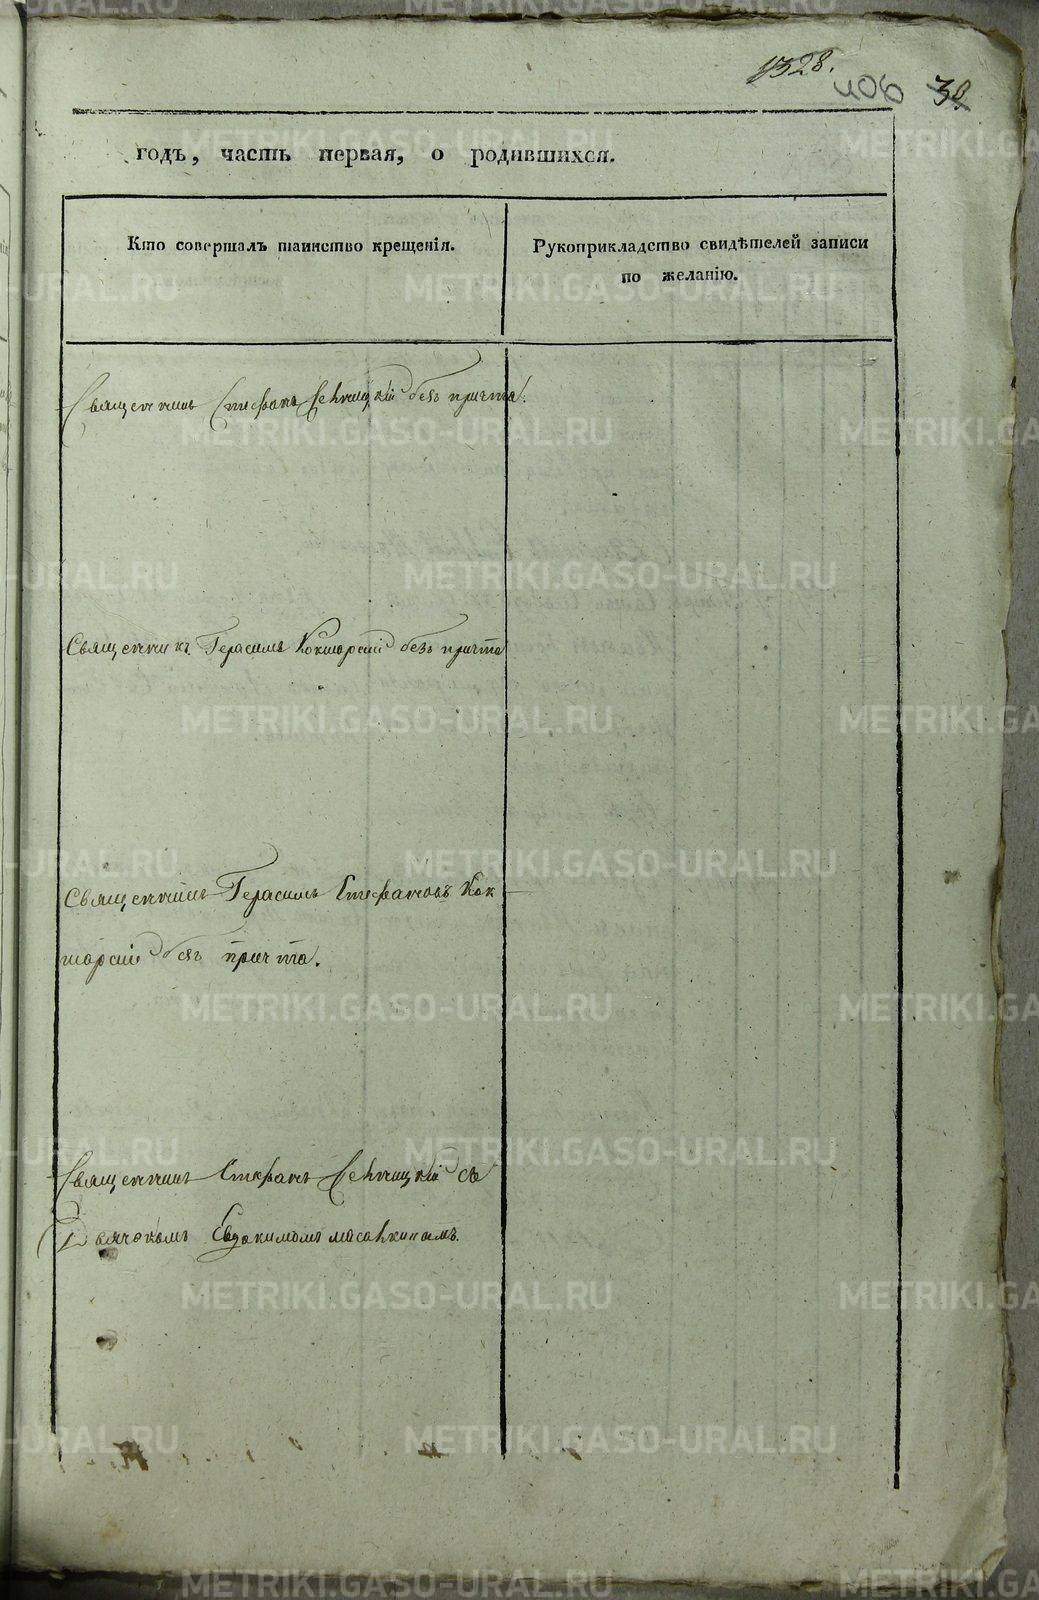 1328.
406 39
годъ, часть первая, о родившихся.
Кто совершалъ таинство крещенія.
Рукоприкладство свидѣтелей записи
по желанію.
Священникъ Стефанъ без причта.
Священникъ Герасимъ Кокшарскій безъ причта
Священникъ Герасимъ Стефановъ Кок
шарскій без причта.
Священникъ Стефанъ съ
Дьячкомъ Евдокимомъ
METRIKI.GASO-URAL.RU